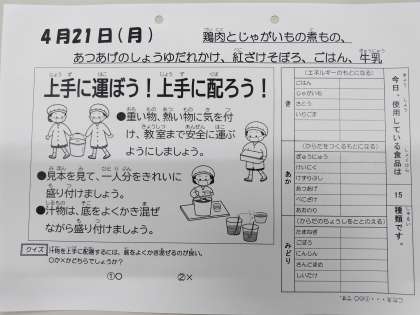 4月21日(月)
鶏肉とじゃがいもの煮もの、
あつあげのしょうゆだれかけ、紅ざけそぼろ、ごはん、牛乳
上手に運ぼう！上手に配ろう！
●重い物、熱い物に気を付
け、教室まで安全に運ぶ
ようにしましょう。
●見本を見て、一人分をきれいに
盛り付けましょう。
●汁物は、底をよくかき混ぜ
ながら盛り付けましょう。
クイズ
汁物を上手に配膳するには、底をよくかき混ぜるのが良い。
○か×かどちらでしょうか？
①○ ②×
今日、使用している食品は 15 種類です。
き
(エネルギーのもとになる)
ごはん
じゃがいも
さとう
いりごま
あか
(からだをつくるもとになる)
ぎゅうにゅう
けいにく
けずりぶし
あつあげ
べにざけ
あおのり
みどり
(からだのちょうしをととのえる)
たまねぎ
ごぼう
にんじん
さんどまめ
しいたけ